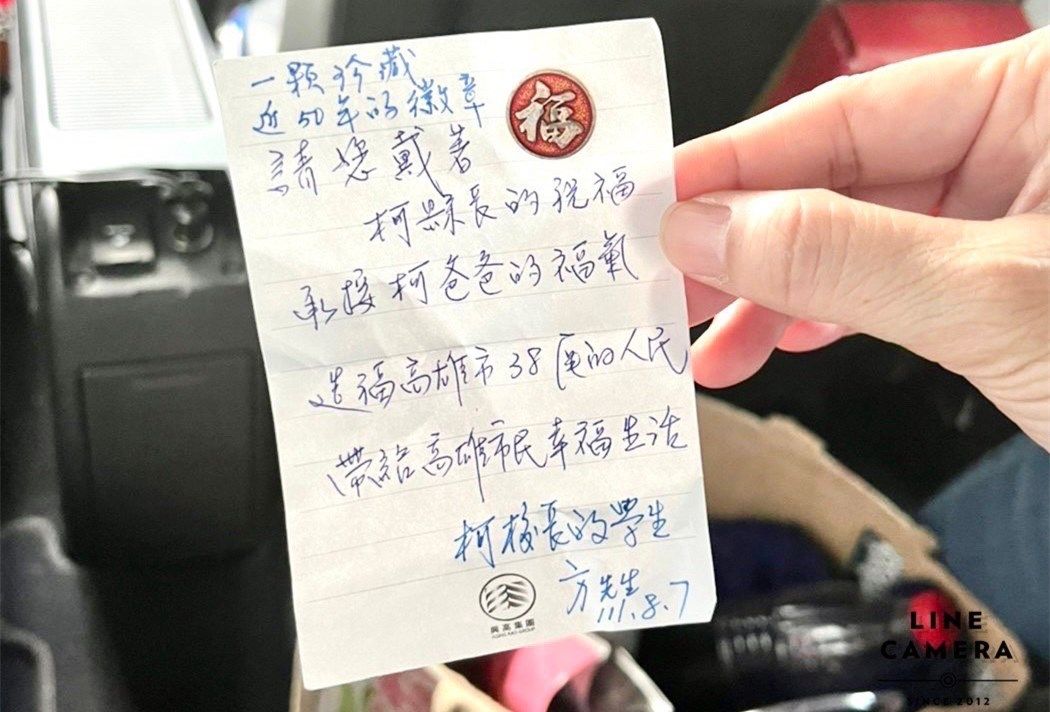 一顆珍藏
近50年的徽章
福
請您戴著
柯縣長的祝福
承接柯爸爸的福氣
造福高雄市38區的人民
帶給高雄市民幸福生活
柯校長的學生
方先生
111.8.7
興高集團
LINE
CAMERA
SINCE 2012